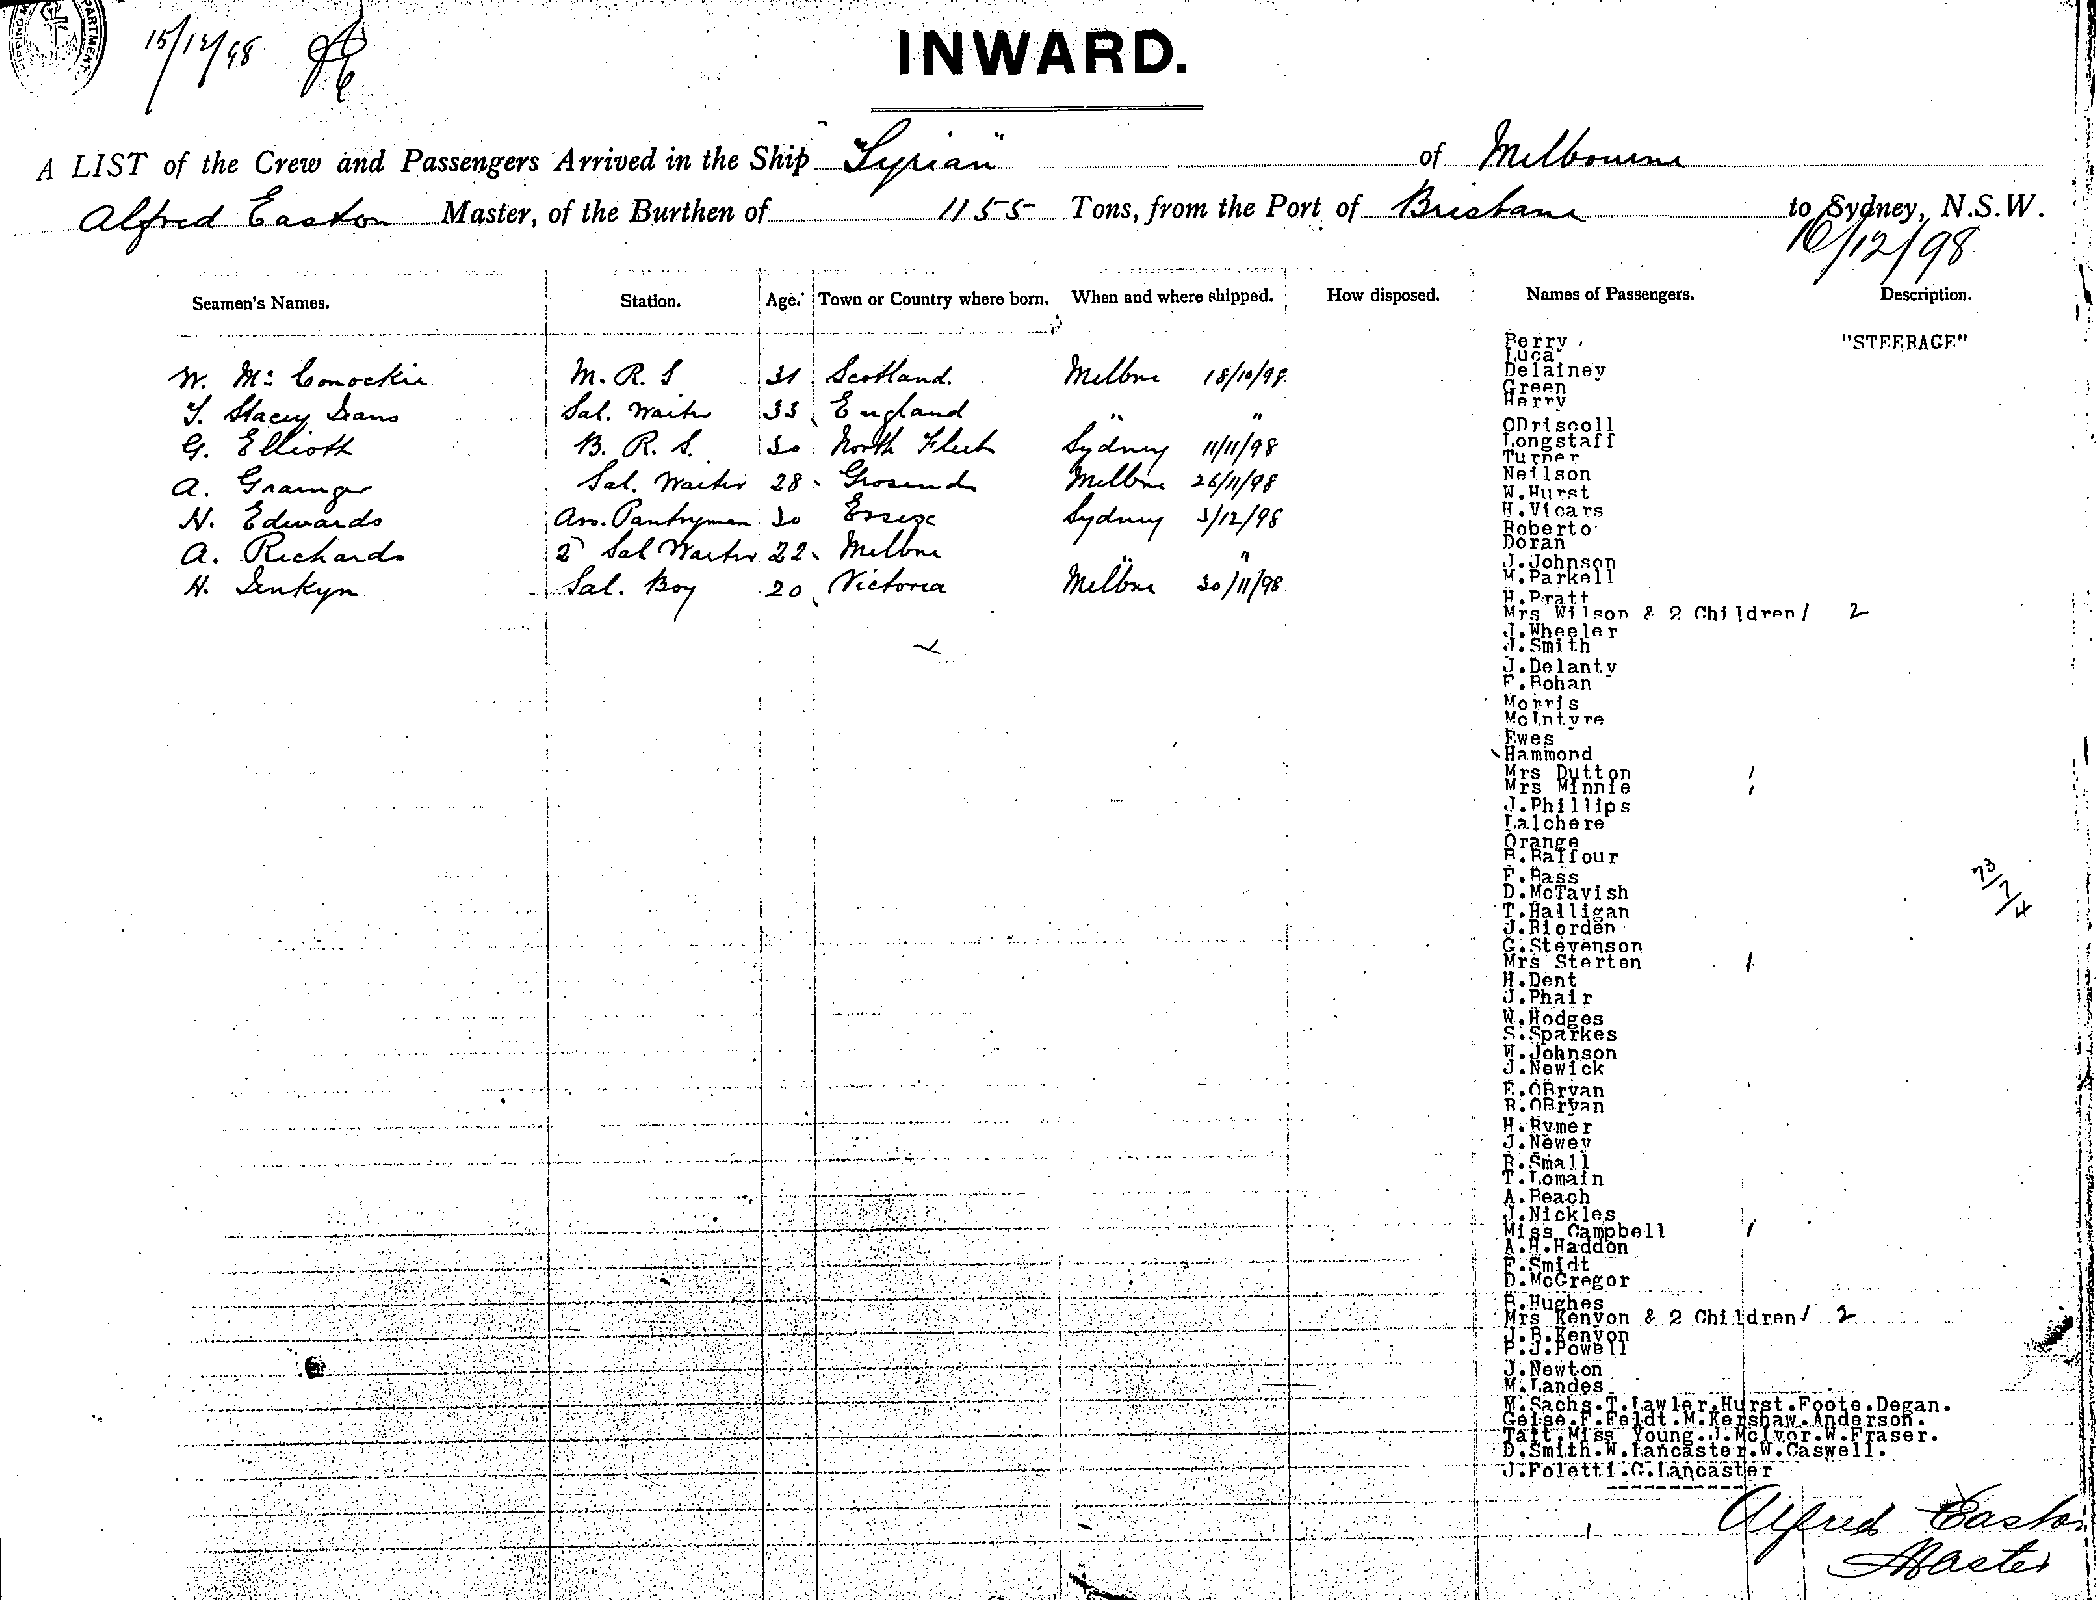 15/12/98
INWARD.
A LIST of the Crew and Passengers Arrived in the Ship "Syrian" of Melbourne
Alfred Easton Master, of the Burthen of 1155 Tons, from the Port of Brisbane to Sydney, N.S.W.
16/12/98
Seamen's Names. Station. Age. Town or Country where born. When and where shipped. How disposed. Names of Passengers. Description.
W. McConockie M. R. S 31 Scotland. Melbne 18/10/98
T. Stacey Deans Sal. Waiter 33 England " "
G. Elliott B. R. S. 30 North Fleet Sydney 11/11/98
A. Grainger Sal. Waiter 28 Melbne 26/11/98
H. Edwards Pantryman 30 Essex Sydney 3/12/98
A. Richards 2 Sal Waiter 22 Melbne " "
H. Jenkyn Sal. Boy 20 Victoria Melbne 30/11/98
Perry "STEERAGE"
Luca
Delainey
Green
Herry
ODriscoll
Longstaff
Turner
Neilson
W.Hurst
H.Vicars
Roberto
Doran
J.Johnson
M.Parkell
H.Pratt
Mrs Wilson & 2 Children / 2
J.Wheeler
J.Smith
J.Delanty
F.Bohan
Morris
McIntyre
Ewes
Hammond
Mrs Dutton /
Mrs Minnie /
J.Phillips
Lalchere
Orange
R.Balfour
F.Bass
D.McTavish
T.Halligan
J.Riorden
G.Stevenson
Mrs Sterten /
H.Dent
J.Phair
W.Hodges
S.Sparkes
W.Johnson
J.Newick
E.OBryan
R.OBryan
H.Rymer
J.Newey
R.Small
T.Lomain
A.Beach
J.Nickles
Miss Campbell /
A.H.Haddon
F.Smidt
D.McGregor
R.Hughes
Mrs Kenyon & 2 Children / 2
J.B.Kenyon
P.J.Powell
J.Newton
M.Landes
W.Sachs.T.Lawler.Hurst.Foote.Degan.
Geise.F.Feldt.M.Kershaw.Anderson.
Tait.Miss Young.J.McIvor.W.Fraser.
D.Smith.W.Lancaster.W.Caswell.
J.Foletti.G.Lancaster
73/7/4
Alfred Easton
Master